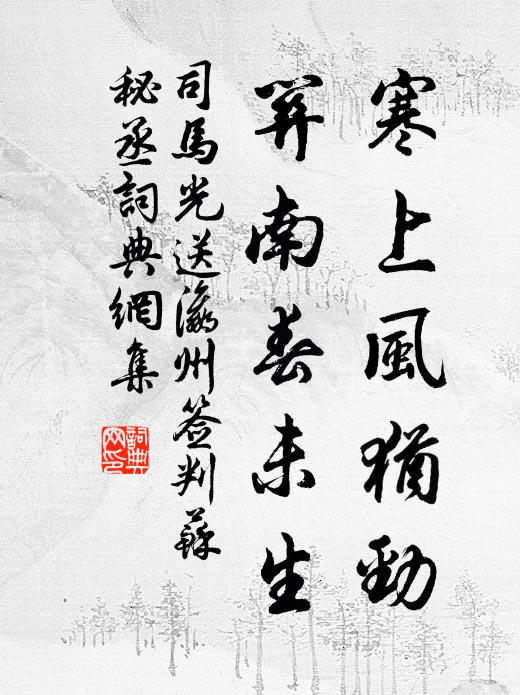 寒上風猶勁
關南春未生
司馬光送瀛州签判蘇
秘丞詞典網集
詞典网印